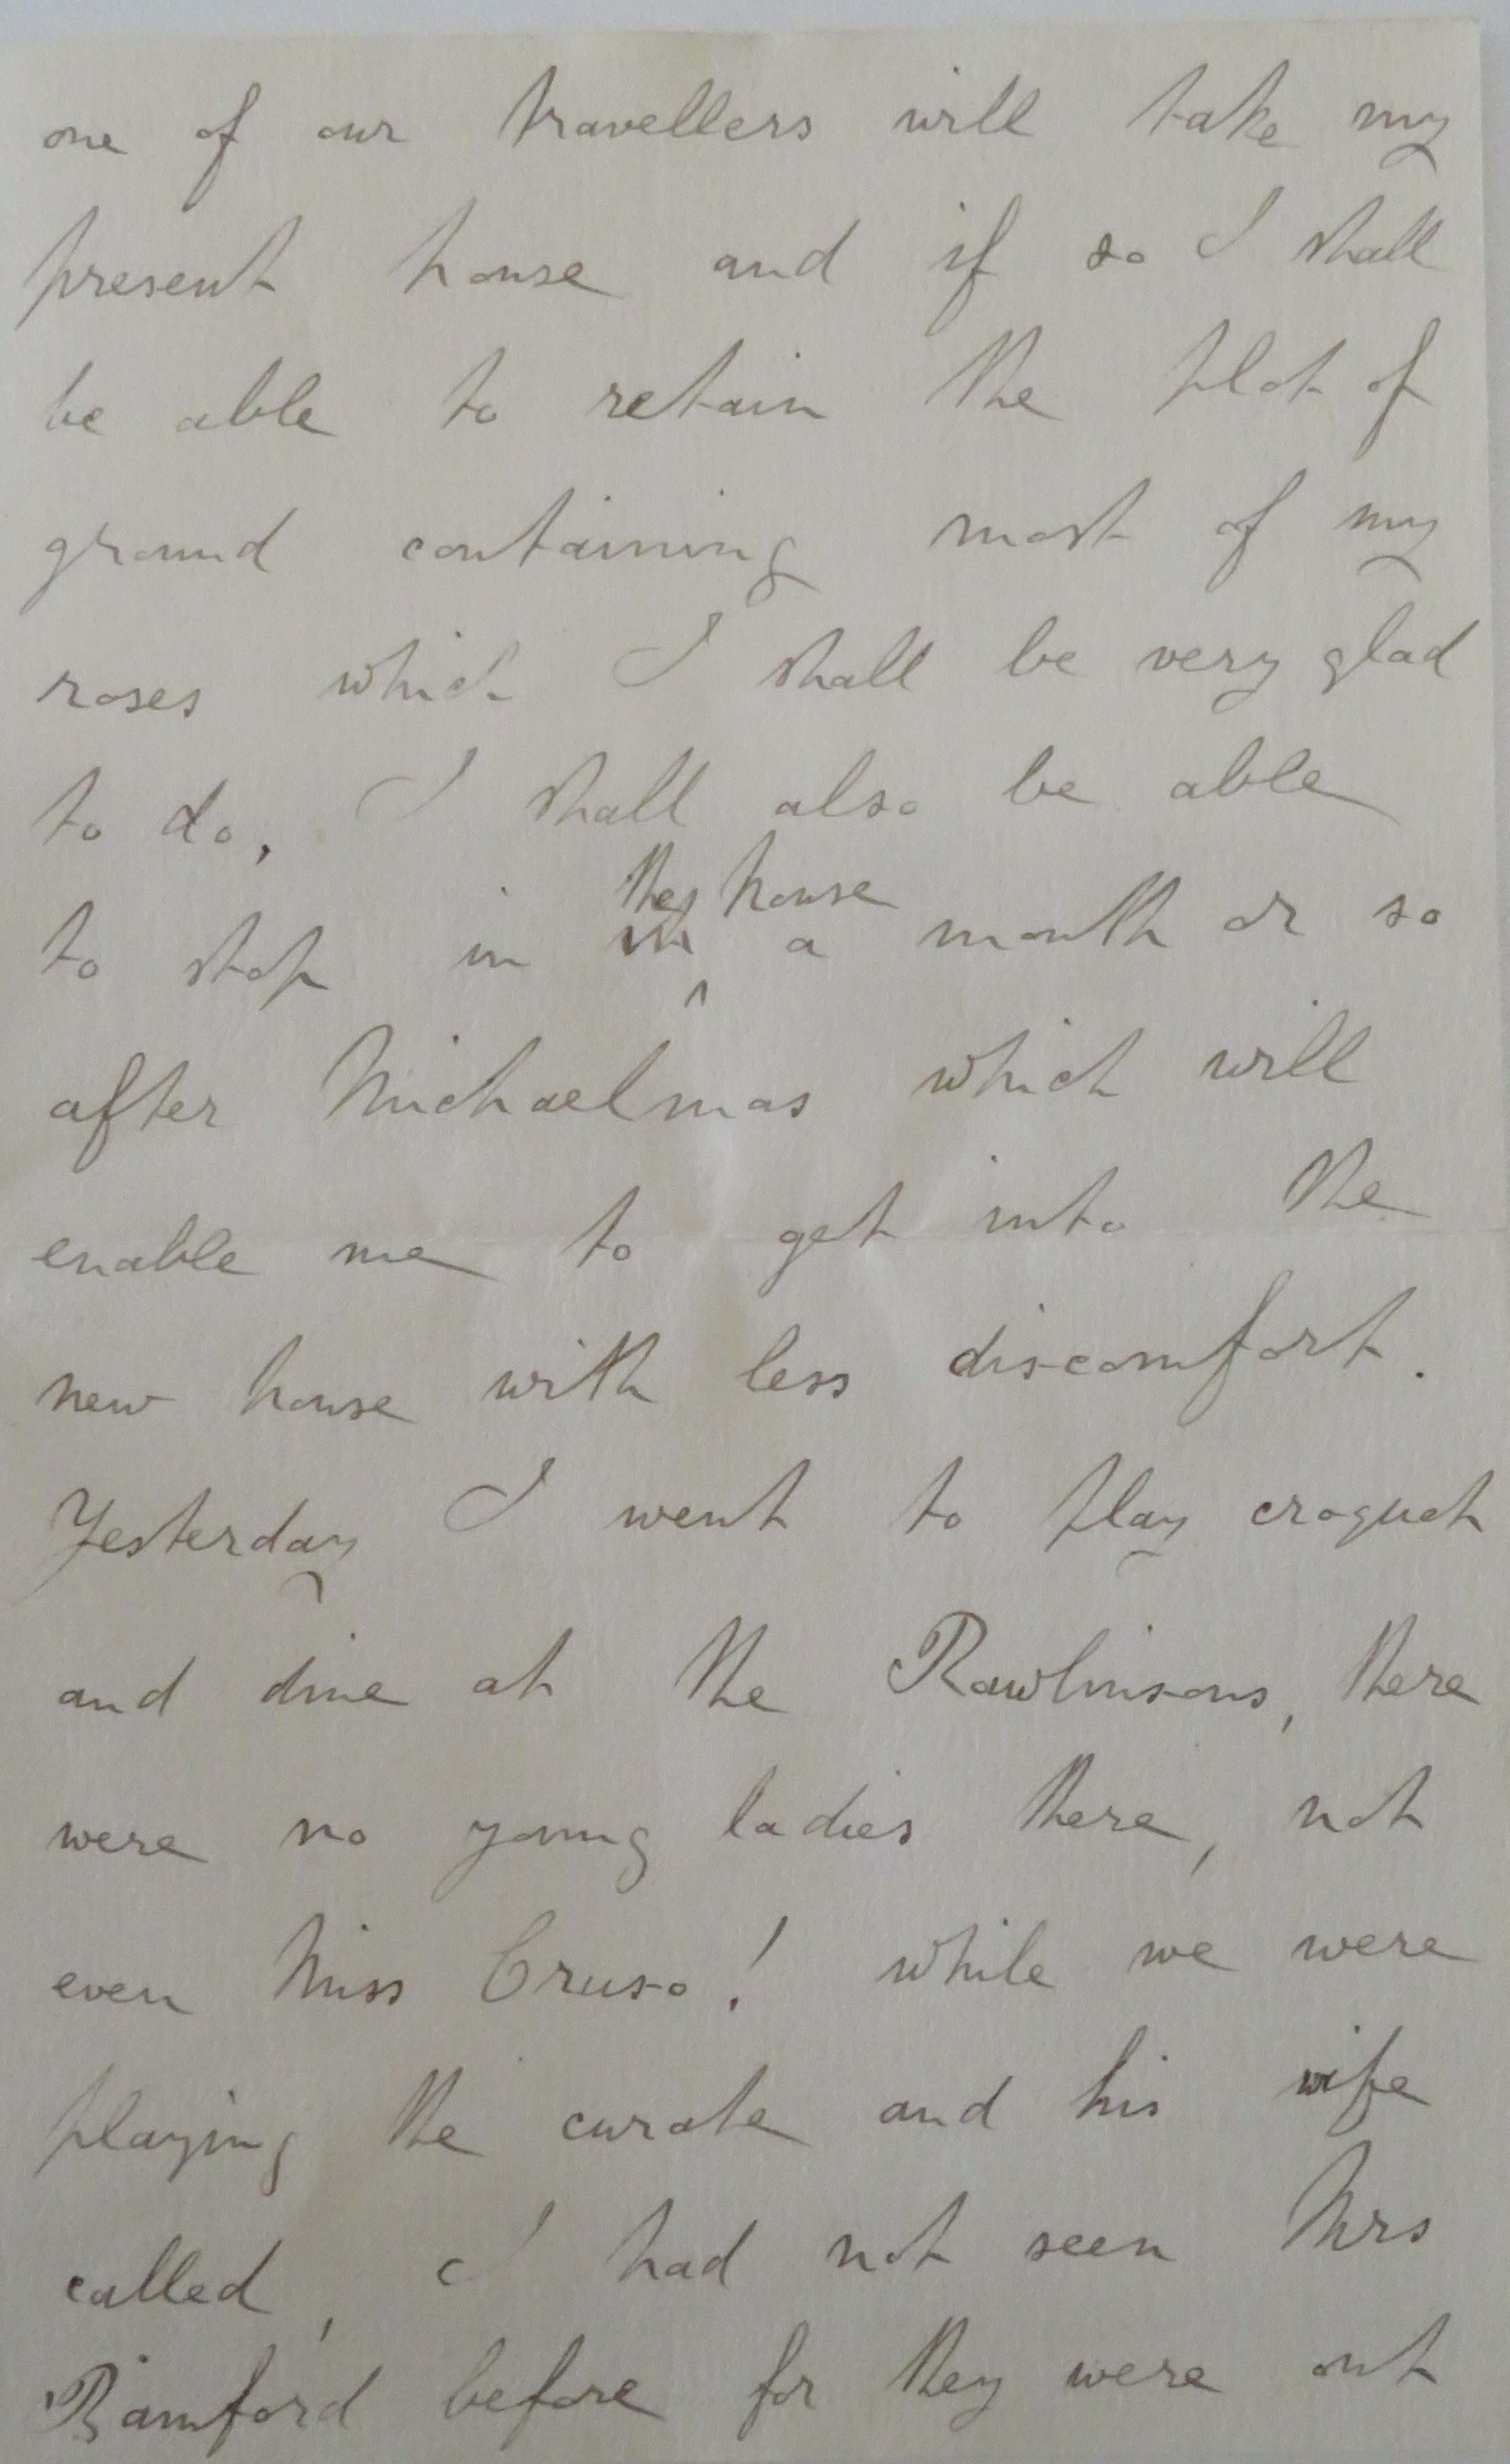 one of our travellers will take my
present house and if so I shall
be able to retain the plot of
ground containing most of my
roses which I shall be very glad
to do, I shall also be able
the house
to stop in a month or so
after Michaelmas which will
enable me to get into the
new house with less discomfort.
Yesterday I went to play croquet
and dine at the Rawlinsons, there
were no young ladies there, not
even Miss Cruso! while we were
playing the curate and his wife
called, I had not seen Mrs
Bamford before for they were out